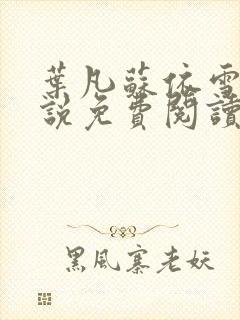 葉凡蘇依雪
說免費閱讀
黑風寨老妖